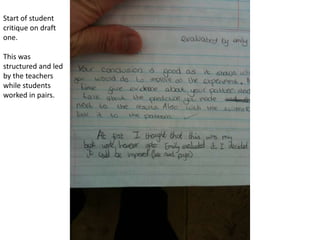 Start of student
critique on draft
one.
This was
structured and led
by the teachers
while students
worked in pairs.
evaluated by emily
Your conclusion is good as it shows wh
you would do to improve on the experiment.
time give evidence about your pattern
fact about the prediction you made
next to the results. Also with the
link it to the pattern
At first I thought that this was my
best work, however after Emily evaluated it I decided
it could be improved (see next page).